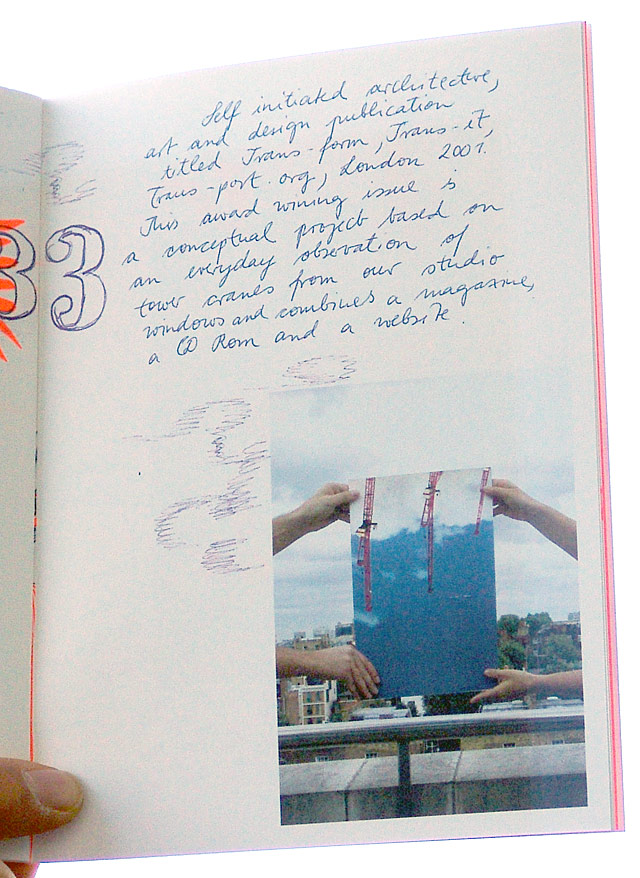 33
Self initiated architective,
art and design publication
titled Trans-form, Trans-it,
Trans-port.org, London 2001.
This award wining issue is
a conceptual project based on
an everyday observation of
tower cranes from our studio
windows and combines a magazine,
a CD Rom and a website.